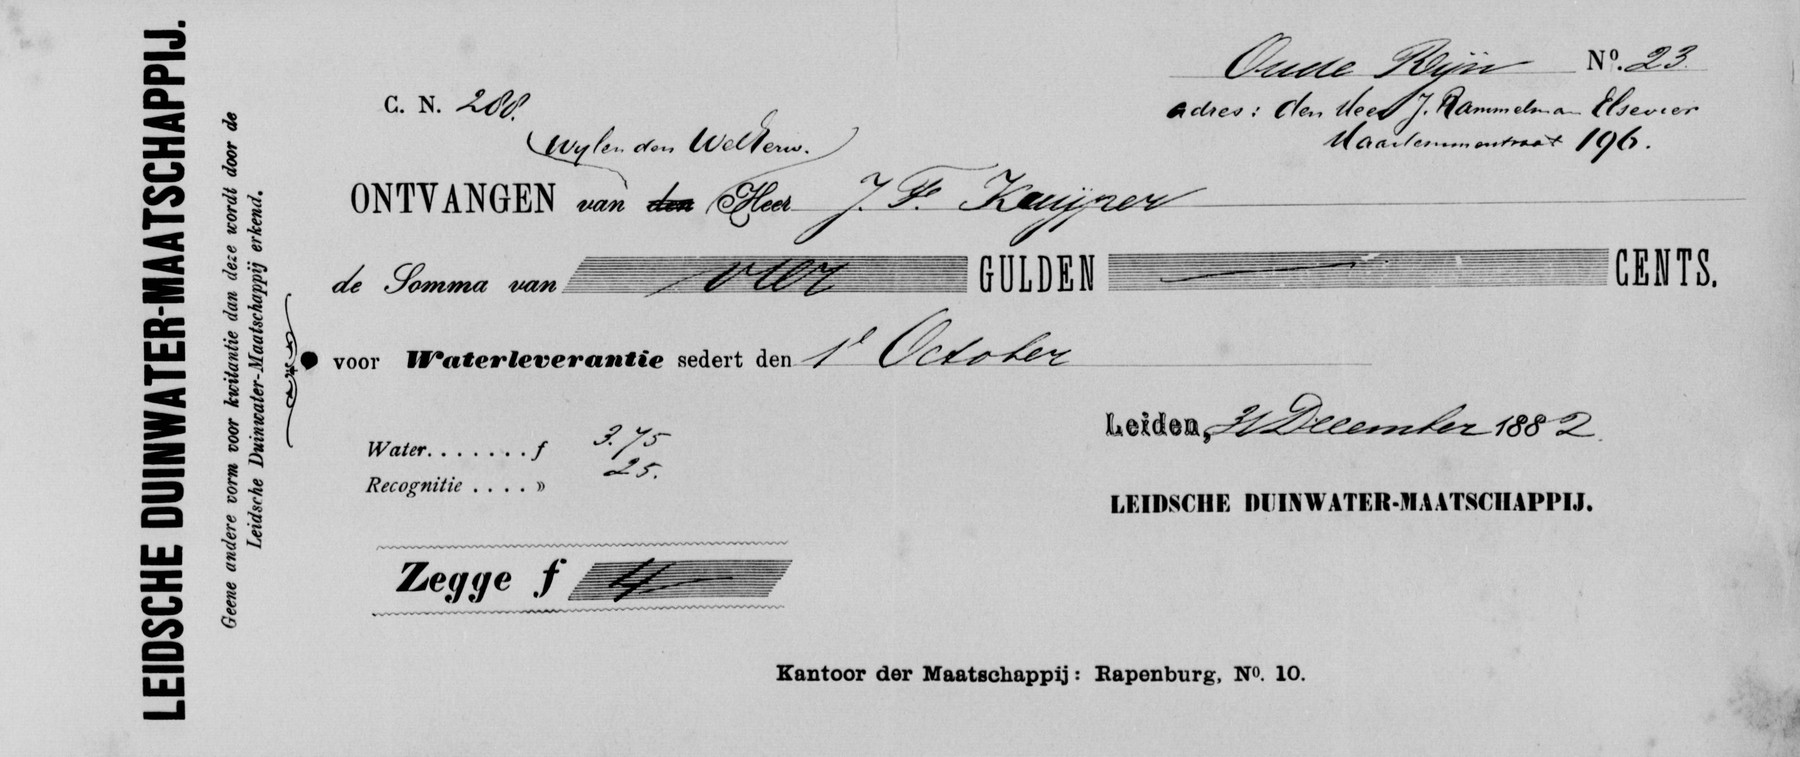 LEIDSCHE DUINWATER-MAATSCHAPPIJ.
Geene andere vorm voor kwitantie dan deze wordt door de
Leidsche Duinwater-Maatschappij erkend.
Oude Rijn No. 23.
C. N. 288.
adres: den Heer J. Rammelman Elsevier
Haarlemmerstraat 196.
Wylen den WelEerw.
ONTVANGEN van den Heer J. F. Kuijper
de Somma van vier GULDEN — CENTS.
voor Waterleverantie sedert den 1e October
Leiden, 31 December 1882.
Water. . . . . . . f 3.75
Recognitie . . . . » 25.
LEIDSCHE DUINWATER-MAATSCHAPPIJ.
Zegge f 4—
Kantoor der Maatschappij: Rapenburg, No. 10.